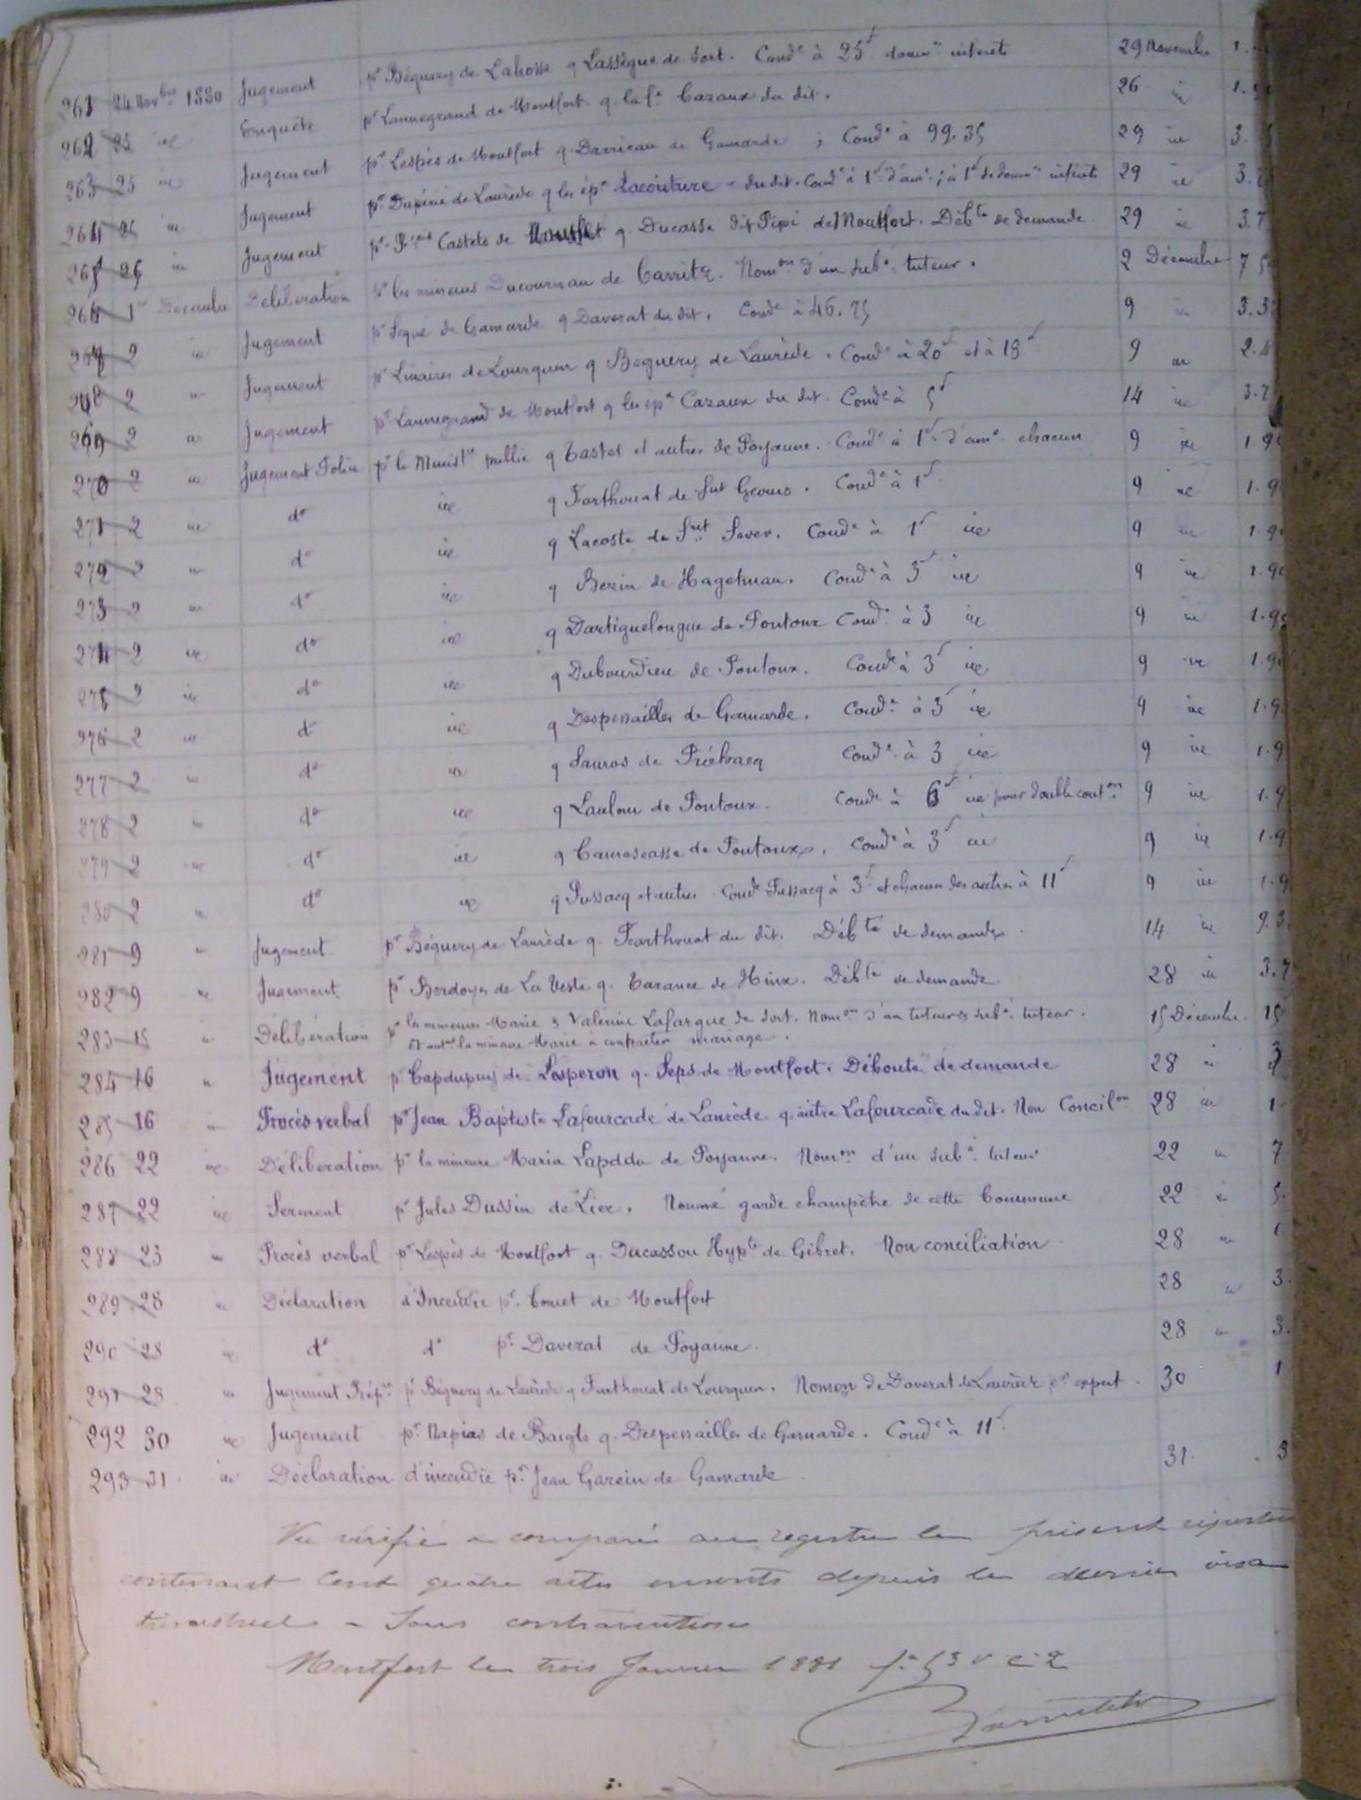 261 24 Novbre 1880 Jugement pr Béguery de Lahosse q Lassègue de Sort. Condé à 25f domm. intérêts 29 Novembre 1.
262 25 ie Enquête pr Lannegrand de Montfort q. la fe Cazaux du dit. 26 ie 1.
263 25 ie Jugement pr Lespès de Montfort q. Darrieau de Gamarde ; Condé à 99.35 29 ie 3.
264 25 ie Jugement pr Dupérié de Laurède q les épx Lacouture du dit. Condé à 1f d'ame ; à 1f de domm. intérêts 29 ie 3.
265 25 ie Jugement pr Castets de q. Ducasse dit Pépé de Montfort. Débté de demande 29 ie 3.7
266 1er Décembre Délibération pr les mineurs Ducournau de Garritz. Nomon d'un subé tuteur. 2 Décembre 7
267 2 ie Jugement pr de Gamarde q Daverat du dit. Condé à 46.75 9 ie 3.3
268 2 ie Jugement pr Linaires de Lourquen q Béguery de Laurède. Condé à 20f et à 18f 9 ie 2.
269 2 ie Jugement pr Lannegrand de Montfort q les épx Cazaux du dit. Condé à 5f 14 ie 3.7
270 2 ie Jugement Police pr le Ministre public q Castet et autres de Poyanne. Condé à 1f d'ame chacun 9 ie 1.9
271 2 ie do ie q Farthouat de Snt Geours. Condé à 1f 9 ie 1.9
272 2 ie do ie q Lacoste de Snt Sever. Condé à 1f ie 9 ie 1.9
273 2 ie do ie q de Hagetmau. Condé à 3f ie 9 ie 1.90
274 2 ie do ie q Dartiguelongue de Pontoux Condé à 3 ie 9 ie 1.9
275 2 ie do ie q Dubourdieu de Pontoux. Condé à 3f ie 9 ie 1.9
276 2 ie do ie q Despenailles de Gamarde. Condé à 3f ie 9 ie 1.9
277 2 ie do ie q de Préchacq Condé à 3 ie 9 ie 1.9
278 2 ie do ie q Laulom de Pontoux. Condé à 6f ie pour double conton 9 ie 1.9
279 2 ie do ie q Camescasse de Pontoux. Condé à 3f ie 9 ie 1.9
280 2 ie do ie q Pussacq et autres Condé Pussacq à 3f et chacun des autres à 11f 9 ie 1.9
281 9 ie Jugement pr Béguery de Laurède q. Farthouat du dit. Débté de demande. 14 ie 9.3
282 9 ie Jugement pr Bordoys de La Veste q. Tarance de Hinx. Débté de demande 28 ie 3.7
283 15 ie Délibération pr les mineures Marie & Valérine Lafargue de Sort. Nomon d'un tuteur & subé tuteur. 15 Décembre 15
et autt la mineure Marie à contracter mariage.
284 16 ie Jugement pr Capdupuy de Lesperon q. Seps de Montfort. Débouté de demande 28 ie 3
285 16 ie Procès verbal pr Jean Baptiste Lafourcade de Laurède q. autre Lafourcade du dit. Non Concilon 28 ie 1
286 22 ie Délibération pr la mineure Maria de Poyanne. Nomon d'un subé tuteur 22 ie 7
287 22 ie Serment pr Jules Dussin de Lier, Nommé garde champêtre de cette Commune 22 ie 5.
288 23 ie Procès verbal pr Lespès de Montfort q. Ducassou Hypte de Gibret. Non conciliation 28 ie 1
289 28 ie Déclaration d'Incendie pr. Comet de Montfort 28 ie 3.
290 28 ie do do pr. Daverat de Poyanne. 28 ie 3.
291 28 ie Jugement Prépre pr Béguery de Laurède q Farthouat de Lourquen. Nomon de Daverat de Laurède pr expert. 30 1
292 30 ie Jugement pr. Napias de Baigts q. Despenailles de Gamarde. Condé à 11f
293 31 ie Déclaration d'incendie pr Jean Garein de Gamarde. 31. 3
Vu vérifié & comparé au registre le présent répertoire
contenant Cent quatre actes inscrits depuis le dernier visa
trimestriel - Sans contraventions
Montfort le trois Janvier 1881 fo 53 v c 2